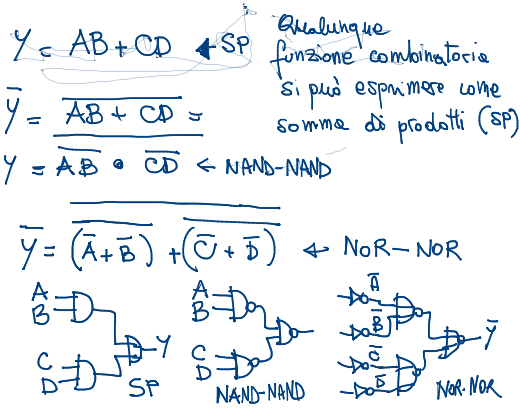 Y = AB + CD ← SP
Qualunque
funzione combinatoria
si può esprimere come
somma di prodotti (SP)
Y̅ = \overline{AB + CD} =
Y = \overline{\overline{AB} • \overline{CD}} ← NAND-NAND
Y̅ = \overline{\overline{(A̅ + B̅)} + \overline{(C̅ + D̅)}} ← NOR-NOR
A
B
C
D
Y
SP
A
B
C
D
NAND-NAND
A̅
B̅
C̅
D̅
Y̅
NOR-NOR